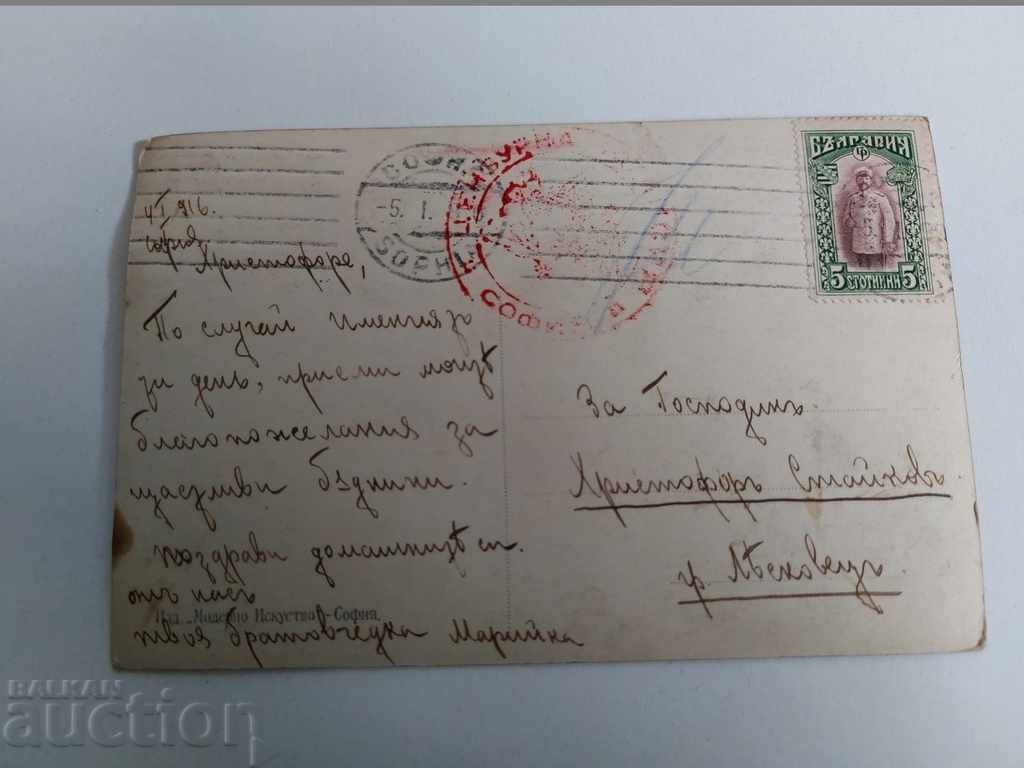 4/I 916.
София
Христофоре,
По случай именния ти
ден, приеми моитѣ
благопожелания за
щастливи бѫднини.
поздрави домашнитѣ си.
отъ насъ
твоя братовчедка Марийка
Изд. „Модерно Искуство“ - София.
СОФИЯ
-5. I.
SOPHIA
СОФИЯ
БЪЛГАРИЯ
5 СТОТИНКИ 5
За Господинъ
Христофоръ Стайновъ
гр. Лѣсковецъ
BALKAN
auction